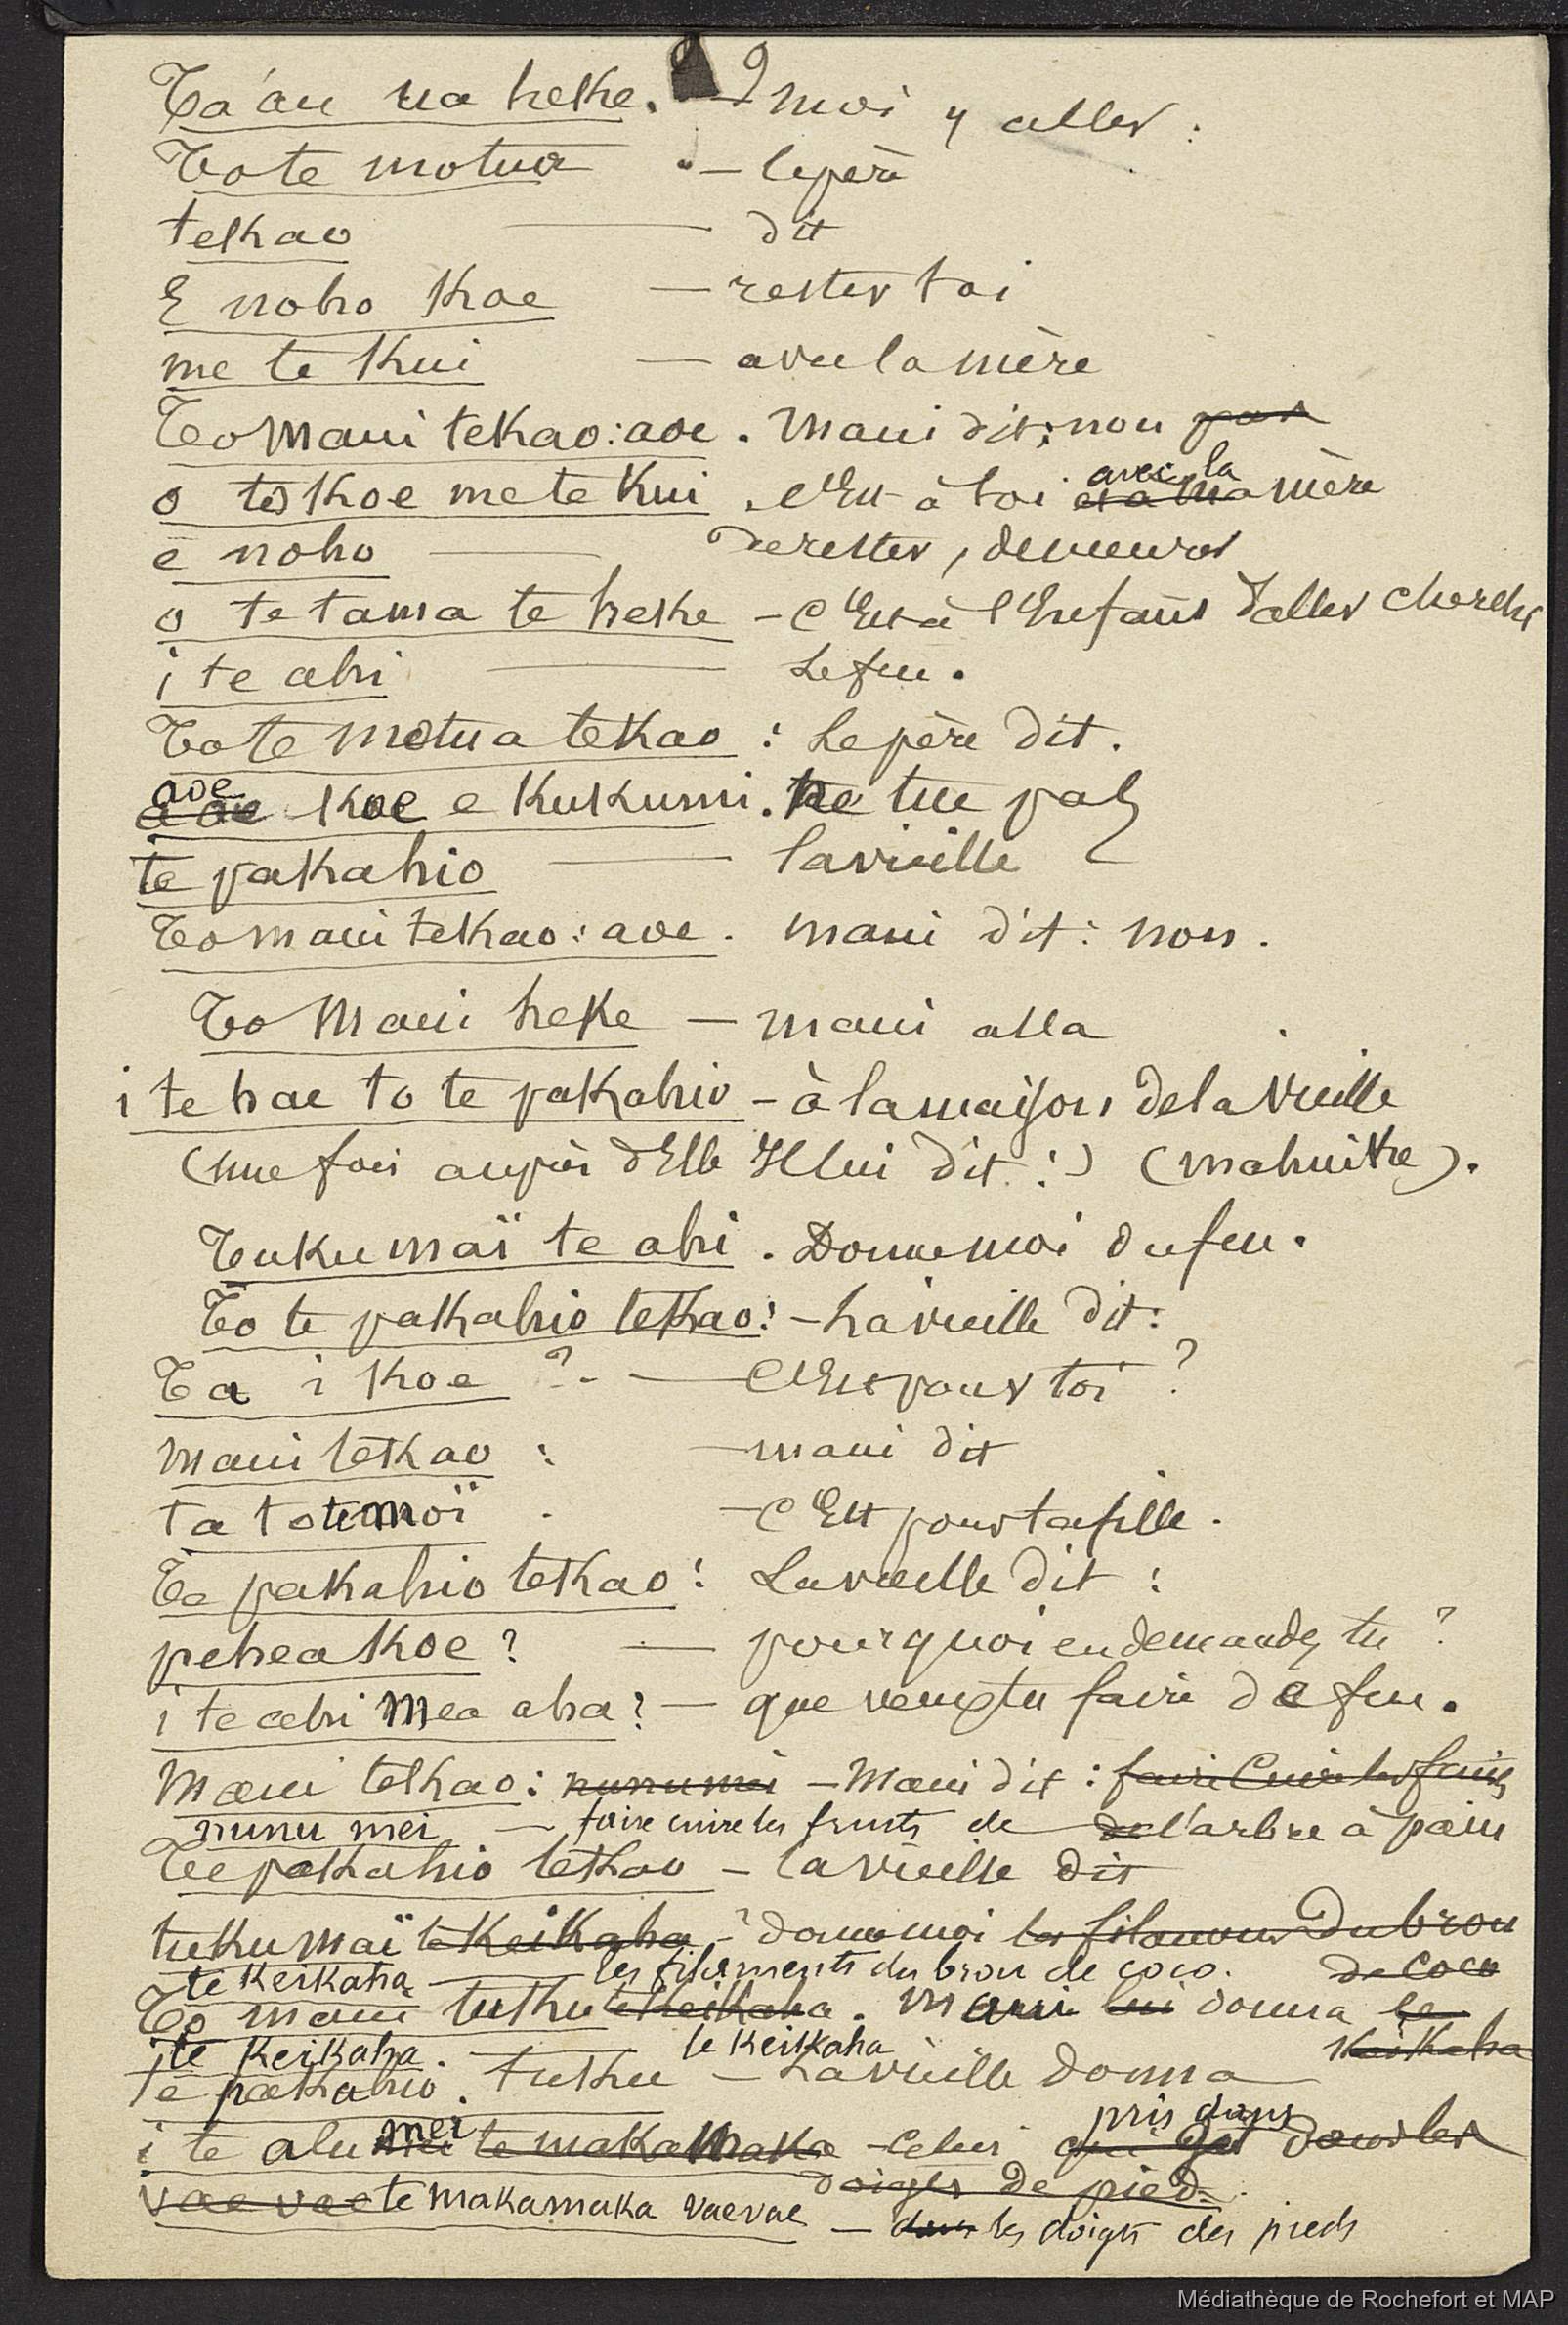 Ta'au ua heke. — moi y aller :
To te motua . — le père
tekao — dit
E noho Koe — rester toi
me te Kui — avec la mère
To Maui tekao : aoe . Maui dit : non pas
o te Koe me te Kui . C'Est à toi avec la mère
e noho — de rester, demeurer
o te tama te heke — C'Est à l'Enfant d'aller chercher
i te ahi — Le feu .
To te motua tekao : Le père dit .
aoe Koe e Kukumi . ne tue pas
te pakahio — la vieille
To maui tekao : aoe . maui dit : non .
To Maui heke — maui alla
i te hae to te pakahio — à la maison de la vieille
(une fois auprès d'Elle Il lui dit : ) (mahuike) .
Tuku maï te ahi . Donne moi du feu .
To te pakahio tekao : — La vieille dit :
Ta i Koe ? — C'Est pour toi ?
maui tekao : — maui dit
ta to te moï . — C'Est pour ta fille .
Te pakahio tekao : La vieille dit :
pehea Koe ? — pourquoi en demandes tu ?
i te ahi mea aha ? — que veux tu faire de feu .
Maui tekao : nunu mei — Maui dit : faire Cuire les fruits
nunu mei — faire cuire les fruits de de l'arbre à pain
Te pakahio tekao — la vieille dit
tuku maï te Keikaha — donne moi les filaments du brou
te Keikaha — les filaments du brou de coco . de Coco
To maui tuku te Keikaha . Maui lui donna le
i te Keikaha . — le Keikaha Keikaha
Te pakahio . tuku — La vieille donna
i te ahi mei te makamaka — Celui qui est pris dans dans les
doigts de pied .
vae vae te makamaka vaevae — dans les doigts des pieds
Médiathèque de Rochefort et MAP